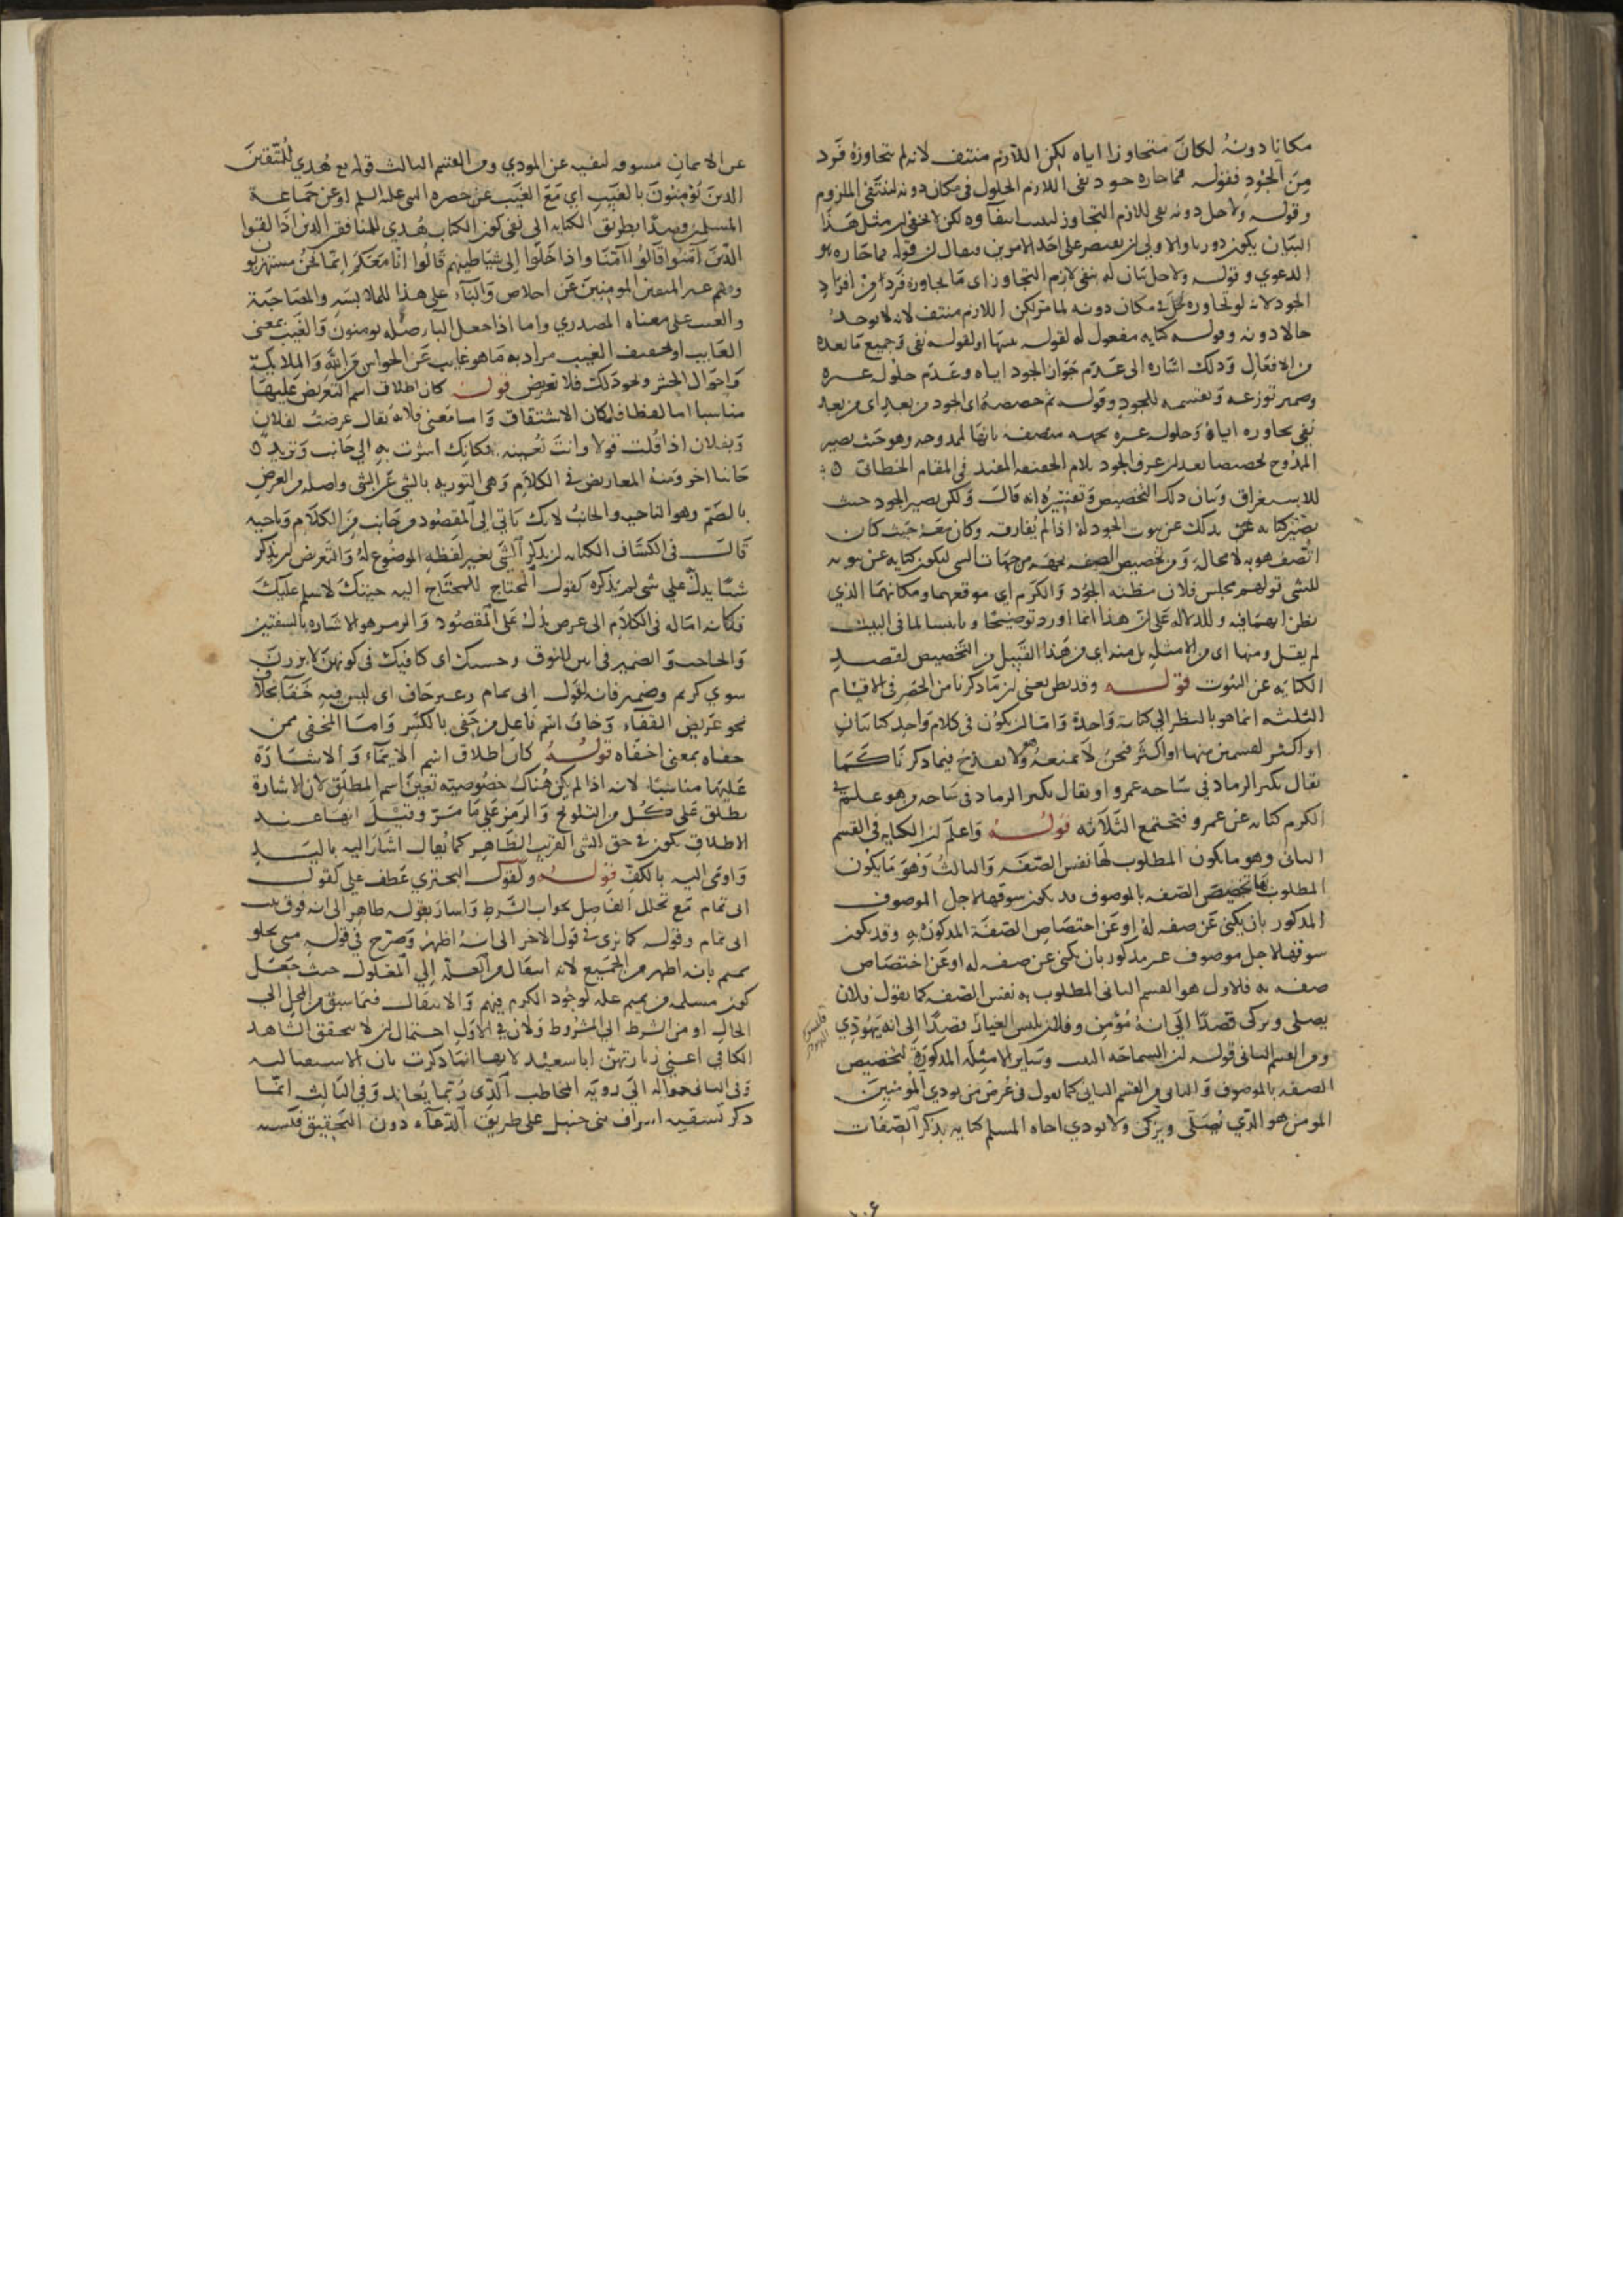 مكانا دونه لكان متجاوزا اياه لكن اللازم منتف لانه لم يتجاوزه فرد
من الجود فقوله فما جازه جود نفى اللازم الحلول فى مكان دونه لينتفى الملزوم
وقوله ولا حل دونه نفى اللازم التجاوز لكن لا يخفى ان مثل هذا
البيان يكون دوريا والاولى ان يقتصر على احد الامرين فيقال ان قوله فما جازه هو
الدعوي وقوله ولا حل بيان له بنفى لازم التجاوز اى ما يجاوزه فرد من افراد
الجود لانه لو تجاوزه لحل فى مكان دونه لما مر لكن اللازم منتف لانه لا يوجد
حالا دونه وقوله كناية مفعول له لقوله نفى وجميع ما بعده
من الافعال وذلك اشاره الى عدم جواز الجود اياه وعدم حلول غيره
وضمير توزعه وتقسمه للجود وقوله ثم خصصه اى الجود من بعد اى من بعد
نفى تجاوزه اياه وحلول غيره بجهة متصفة بانها لممدوحه وهو حيث يصير
الممدوح تخصيصا بعد ان عرف الجود بلام الحقيقه المفيد فى المقام الخطابى
للاستغراق وبيان ذلك التخصيص وتفسيره انه قال ولكن يصير الجود حيث
يصير كنايه بذلك عن ثبوت الجود له اذا لم يفارقه وكان معه حيث كان
اتصف هو به لا محاله ومن تخصيص الصفه بجهه من جهات الشى ليكون كنايه عن ثبوته
للشى قولهم مجلس فلان مظنه الجود والكرم اى موقعهما ومكانهما الذي
يظن انهما فيه وللدلاله على ان هذا انما اورد توضيحا لما فى البيت
لم يقل ومنها اى من الامثله بل منه اى من هذا القبيل من التخصيص لقصد
الكنايه عن الثبوت قوله وقد يظن يعنى ان ما ذكرنا من الحصر فى الاقسام
الثلثه انما هو بالنظر الى كناية واحدة واما ان يكون فى كلام واحد كنايتان
او اكثر لقسمين منها او اكثر فنحن لا نمنعه ولا يقدح فيما ذكرنا كما
يقال يكثر الرماد في ساحه عمرو او يقال يكثر الرماد فى ساحه وهو علم فى
الكرم كناية عن عمرو فتجتمع الثلاثه قوله واعلم ان الكنايه فى القسم
الثانى وهو ما يكون المطلوب لها نفس الصفه والثالث وهو ما يكون
المطلوب بها تخصيص الصفه بالموصوف قد يكون سوقها لاجل الموصوف
المذكور بان يكنى عن صفه له او عن اختصاص الصفة المذكوره به وقد يكون
سوقها لاجل موصوف غير مذكور بان يكنى عن صفه له او عن اختصاص
صفه به فالاول هو القسم الثانى المطلوب به نفس الصفه كما يقول فلان
يصلى ويزكى قصدا الى انه مؤمن وفلان يلبس الغيار قصدا الى انه يهودي
ومن القسم الثانى قوله ان السماحه البيت وساير الامثله المذكورة لتخصيص
الصفه بالموصوف والثانى من القسم الثانى كما يقول فى عرض من يوذي المؤمنين
المومن هو الذي يصلى ويزكى ولا يوذي اخاه المسلم كنايه بذكر الصفات
عن الايمان مسوقه لنفيه عن الموذي ومن القسم الثالث قوله تع هدي للمتقين
الذين يؤمنون بالغيب اي مع الغيب عن حضره النبى عليه السلم او عن جماعة
المسلمين قصدا بطريق الكنايه الى نفى كون الكتاب هدي للمنافقين الذين اذا لقوا
الذين آمنوا قالوا آمنا واذا خلوا الى شياطينهم قالوا انا معكم انما نحن مستهزيو
وفهم غير المتقين المومنين عن اخلاص والباء على هذا للملابسه والمصاحبة
والغيب على معناه المصدري واما اذا جعل الباء صله يومنون والغيب بمعنى
الغايب او تخفيف الغيب مراد به ما هو غايب عن الحواس من الله والملايكة
واحوال الحشر ونحو ذلك فلا تعريض قوله كان اطلاق اسم التعريض عليها
مناسبا اما لفظا فلمكان الاشتقاق واما معنى فلانه يقال عرضت لفلان
وبفلان اذا قلت قولا وانت تعنيه فكانك اشرت به الى جانب وتريد
جانبا اخر ومنه المعاريض فى الكلام وهى التوريه بالشى عن الشى واصله من العرض
بالضم وهو الناحيه والجانب لانك تاتى الى المقصود من جانب من الكلام وناحيه
قال فى الكشاف الكنايه ان يذكر الشى بغير لفظه الموضوع له والتعريض ان يذكر
شيئا يدل على شى لم يذكره كقول المحتاج للمحتاج اليه جيتك لاسلم عليك
فكانه اماله فى الكلام الى عرض يدل على المقصود والرمز هو الاشاره بالشفتين
والحاجب والضمير فى ابين للنوق وحسبك اى كافيك فى كونهن لا يزرن
سوي كريم وضمير فانه لقول ابى تمام وغير خاف اى ليس فيه خفا بخلاف
نحو عريض القفاء وخاف اسم فاعل من خفى بالكسر واما المخفى فمن
خفاه بمعنى اخفاه قوله كان اطلاق اسم الايماء والاشارة
عليها مناسبا لانه اذا لم يكن هناك خصوصيته تعين اسم المطلق لان الاشارة
تطلق على كل من التلويح والرمز على ما مر وقيل انها عند
الاطلاق يكون فى حق الشى القريب الظاهر كما يقال اشار اليه باليد
واومى اليه بالكف قوله وكقول البحتري عطف على كقول
ابى تمام مع تخلل الفاصل بجواب الشرط واشار بقوله ظاهر الى انه فوق بيت
ابى تمام وقوله كما ترى فى قول الاخر الى انه اظهر وصرح في قوله متى تخلو
تميم بانه اظهر من الجميع لانه انتقال من العلة الي المعلول حيث جعل
كون مسلمه من تميم علة لوجود الكرم فيهم والانتقال فيما سبق من المحل الى
الحال او من الشرط الى المشروط ولان فى الاول احتمال ان لا يتحقق الشاهد
الكافي اعنى زيارتهن ابا سعيد لانها انما ذكرت بان الاستقباليه
وفى الثانى حواله الى رويه المخاطب الذى ربما يعاند وفي الثالث انما
ذكر تسقيه اشراف بنى حنبل على طريق الدعاء دون التحقيق